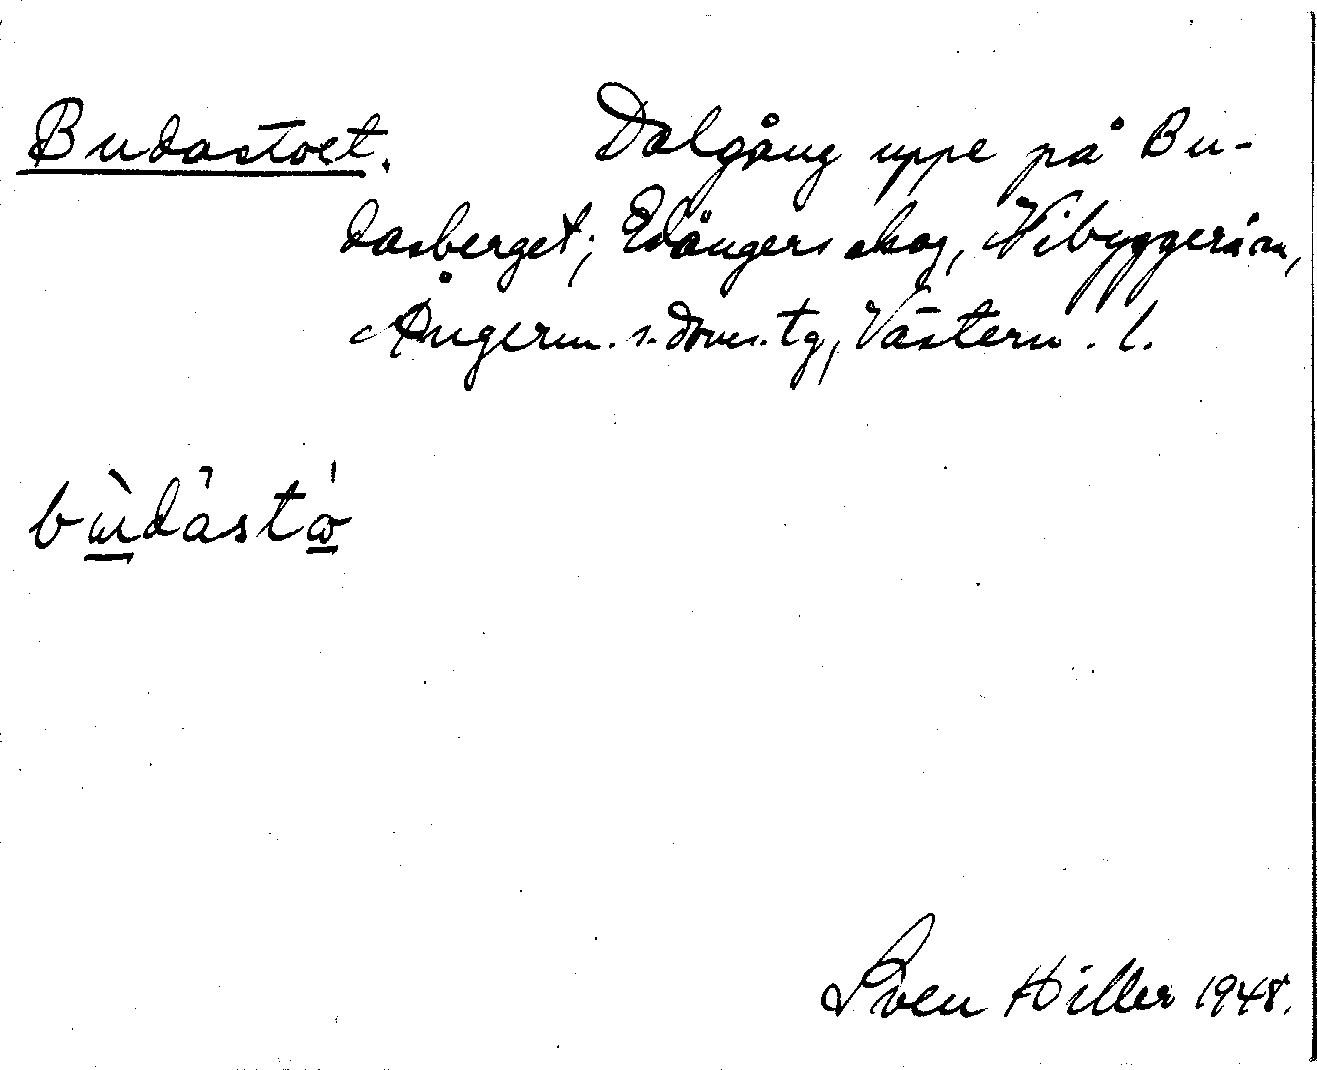 Budastoet. Dalgång uppe på Bu-
dasberget; Edånger skog, Vibyggerå sn,
Ångerm. s. doms. tg, Västern. l.
bùdàstó
Sven Hiller 1948.